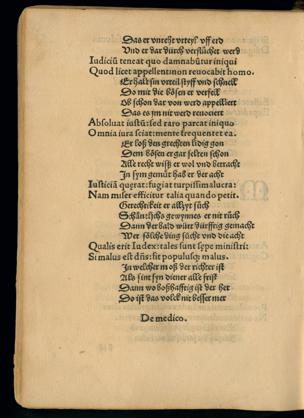 Das er vnreht vrteyl vff erd
Vnd er dar durch verflucht werd
Iudiciū teneat quo damnabūtur iniqui
Quod licet appellentinon reuocabit homo.
Er halt sin vrteil styff vnd schnell
Do mit die bösen er verfell
Ob schon dar von werd appelliert
Das es ym nit werd reuociert
Absoluat iustū: sed raro parcat iniquo
Omnia iura sciat: mente frequentet ea.
Er loß den grechten ledig gon
Dem bösen er gar selten schon
Alle recht wiß er wol vnd betracht
In sym gemüt hab er der acht
Iusticiā quęrat: fugiat turpissima lucra:
Nam miser efficitur talia quando petit.
Gerechtikeit er allzyt süch
Schäntlichs gewynnes er nit rüch
Dann der bald würt dürfftig gemacht
Wer sölche ding sücht vnd die acht
Qualis erit Iudex: tales sunt sępe ministri:
Si malus est dñs: fit populusq; malus.
In welcher moß der richter ist
Als sint syn diener alle frist
Dann wo boßhafftig ist der her
Do ist das volck nit besser mer
De medico.